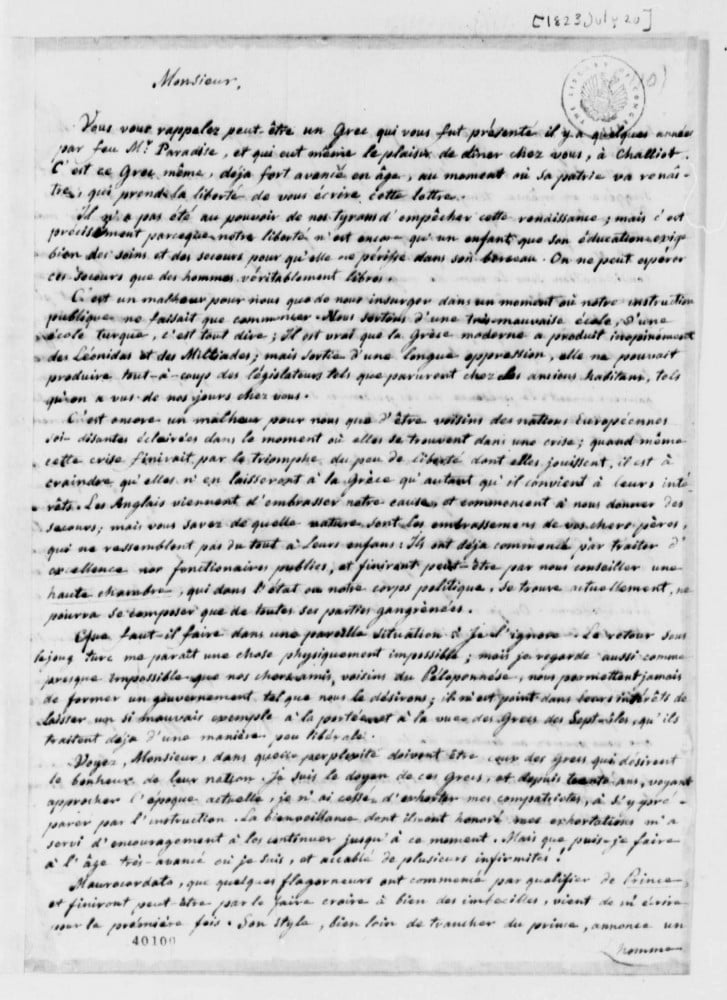 [1823 July 20]
Monsieur,
Vous vous rappelez peut-être un Grec qui vous fut présenté il y a quelques années
par feu Mr. Paradise, et qui eut même le plaisir de dîner chez vous, à Challiot.
C'est ce Grec même, déja fort avancé en âge, au moment où sa patrie va renaî-
tre, qui prend la liberté de vous écrire cette lettre.
Il n'a pas été au pouvoir de nos Tyrans d'empêcher cette renaissance; mais c'est
précisément parceque notre liberté n'est encore qu'un enfant, que son éducation exige
bien des soins et des secours pour qu'elle ne périsse dans son berceau. On ne peut espérer
ces secours que des hommes véritablement libres.
C'est un malheur pour nous que de nous insurger dans un moment où notre instruction
publique ne faisait que commencer. Nous sortons d'une très-mauvaise école, d'une
école turque, c'est tout dire; Il est vrai que la Grèce moderne a produit inopinément
des Léonidas et des Miltiades; mais sortie d'une longue oppression, elle ne pouvait
produire tout-à-coup des législateurs tels que parurent chez les anciens habitans, tels
qu'on a vus de nos jours chez vous.
C'est encore un malheur pour nous que d'être voisins des nations Européennes
soi-disantes éclairées dans le moment où elles se trouvent dans une crise; quand même
cette crise finirait par le triomphe du peu de liberté dont elles jouissent, il est à
craindre qu'elles n'en laisseront à la Grèce qu'autant qu'il convient à leurs inté-
rêts. Les Anglais viennent d'embrasser notre cause, et commencent à nous donner des
secours; mais vous savez de quelle nature sont les embrassemens de vos chers pères,
qui ne ressemblent pas du tout à leurs enfans: Ils ont déja commencé par traiter d'
excellence nos fonctionaires publics, et finiront peut-être par nous conseiller une
haute chambre, qui dans l'état où notre corps politique, se trouve actuellement, ne
pourra se composer que de toutes ses parties gangrénées.
Que faut-il faire dans une pareille situation? Je l'ignore. Le retour sous
le joug turc me paraît une chose physiquement impossible; mais je regarde aussi comme
presque impossible que nos chers amis, voisins du Péloponnèse, nous permettent jamais
de former un gouvernement tel que nous le désirons; il n'est point dans leurs intérêts de
laisser un si mauvais exemple à la portée et à la vue des Grecs des Sept-îles, qu'ils
traitent déja d'une manière peu libérale.
Voyez, Monsieur, dans quelle perplexité doivent être ceux des Grecs qui désirent
le bonheur de leur nation. Je suis le doyen de ces Grecs, et depuis trente ans, voyant
approcher l'époque actuelle, je n'ai cessé d'exhorter mes compatriotes, à s'y pré-
parer par l'instruction. La bienveillance dont ils ont honoré mes exhortations m'a
servi d'encouragement à les continuer jusqu'à ce moment. Mais que puis-je faire
à l'âge très-avancé où je suis, et accablé de plusieurs infirmités!
Maurocordato, que quelques flagorneurs ont commencé par qualifier de Prince,
et finiront peut-être par le faire croire à bien des imbécilles, vient de m'écrire
pour la première fois. Son style, bien loin de trancher du prince, annonce un
homme
40100